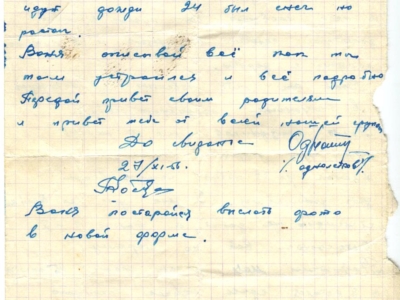 идут дожди 24 был снег но
растаял.
Ваня описывай всё как ты
там устроился и всё подробно
Передай привет своим родителям
и привет тебе от всей нашей группы
До свиданья
27/XI-55.
Костя
Ваня постарайся выслать фото
в новой форме.